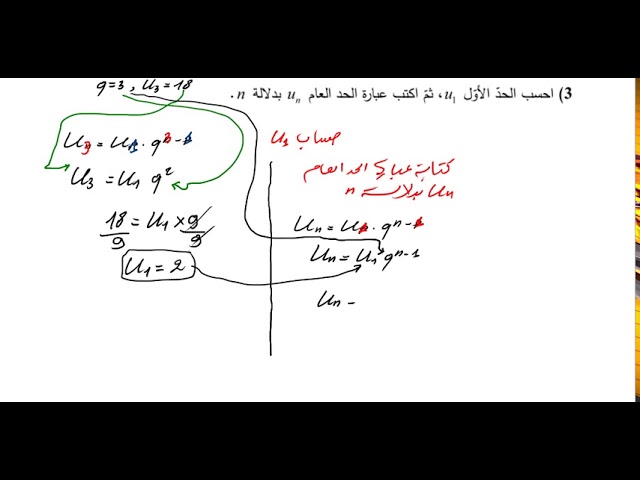 3) احسب الحدّ الأوّل u₁، ثمّ اكتب عبارة الحد العام uₙ بدلالة n .
q=3 , U₃=18
حساب U₁
U₃ = U₁ · q³⁻¹
U₃ = U₁ q²
18/9 = U₁ × 9/9
U₁ = 2
كتابة عبارة الحد العام
Uₙ بدلالة n
Uₙ = U₁ · qⁿ⁻¹
Uₙ = U₁ qⁿ⁻¹
Uₙ =